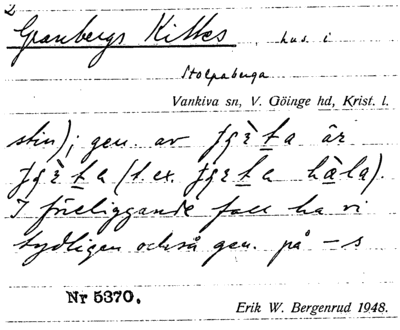 2
Granbergs Kittes hus i
Stolpaberga
Vankiva sn, V. Göinge hd, Krist. l.
stin); gen. av är
(t.ex. ).
I föreliggande fall ha vi
tydligen också gen. på -s
Nr 5370.
Erik W. Bergenrud 1948.